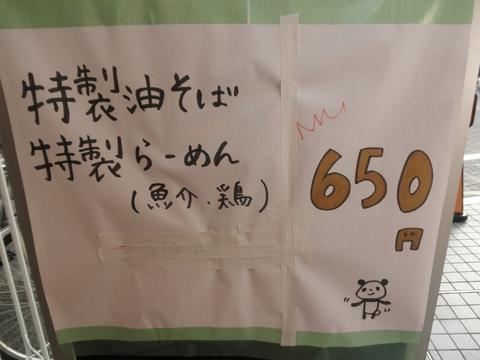 特製油そば
特製らーめん
(魚介・鶏)
650
円